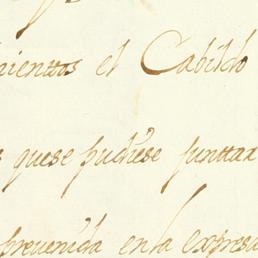 nientos el Cabildo
quese pudiese junttar
prevenida enla expresa